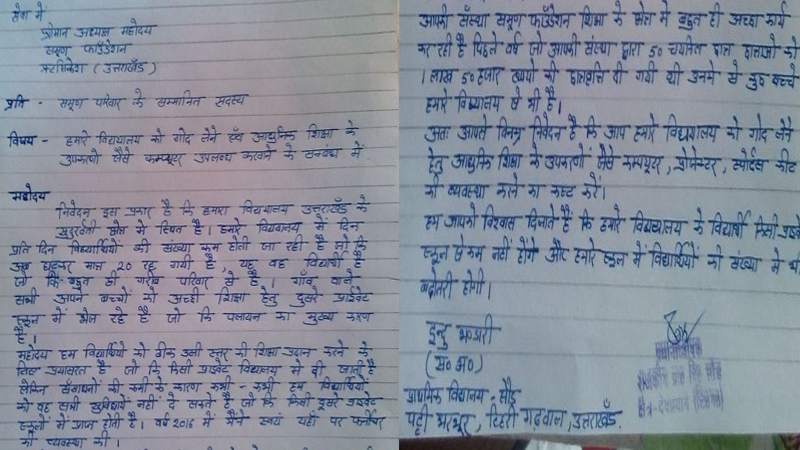 सेवा में
श्रीमान अध्यक्ष महोदय
समूण फाँउडेशन
ऋषिकेश (उत्तराखँड)
प्रति - समूण परिवार के सम्मानित सदस्य
विषय - हमारे विद्यालय को गोद लेने हेँतु आधुनिक शिक्षा के
उपकरणों जैसे कम्प्यूटर उपलब्ध करवाने के सम्बंध में
महोदय
निवेदन इस प्रकार है कि हमारा विद्यालय उत्तराखँड के
सुदुरवर्ती क्षेत्र में स्थित है। हमारे विद्यालय में दिन
प्रति दिन विद्यार्थियों की संख्या कम होती जा रही है जो कि
अब घटकर मात्र 20 रह गयी है, यह वह विद्यार्थी है
जो कि बहुत ही गरीब परिवार से है। गाँव वाले
सभी अपने बच्चों को अच्छी शिक्षा हेतु दुसरे प्राईवेट
स्कूल में भेज रहे है जो कि पलायन का मुख्य कारण
है।
महोदय हम विद्यार्थियों को ठीक उसी स्तर की शिक्षा प्रदान करने के
लिए प्रयासरत है जो कि किसी प्राइवेट विद्यालय में दी जाती है
लेकिन संसाधनों की कमी के कारण कभी - कभी हम विद्यार्थियों
को वह सभी सुविधायें नहीं दे सकते है जो कि किसी दुसरे प्राइवेट
स्कूलों में प्राप्त होती है। वर्ष 2016 में मैंने स्वयं यहाँ पर फर्नीचर
की व्यवस्था की।
आपकी सँस्था समूण फाँउडेशन शिक्षा के क्षेत्र में बहुत ही अच्छा कार्य
कर रही है पिछले वर्ष जो आपकी संस्था द्वारा 50 चयनित छात्र छात्राओं को
1 लाख 50 हजार रुपयों की छात्रवृत्ति दी गयी थी उनमे से कुछ बच्चे
हमारे विद्यालय से भी है।
अतः आपसे विनम्र निवेदन है कि आप हमारे विद्यालय को गोद लेने
हेतु आधुनिक शिक्षा के उपकरणों जैसे कम्प्यूटर, प्रोजेक्टर, स्पोर्टस कीट
की व्यवस्था करने का कष्ट करें।
हम आपको विश्वास दिलाते हैं कि हमारे विद्यालय के विद्यार्थी किसी प्राइवेट
स्कूल से कम नहीं होंगे और हमारे स्कूल में विद्यार्थियों की संख्या में भी
बढ़ोतरी होगी।
इन्दु भण्डारी
(स० अ०)
प्राथमिक विद्यालय - सौड़
पट्टी भरपूर, टिहरी गढ़वाल, उत्तराखँड.